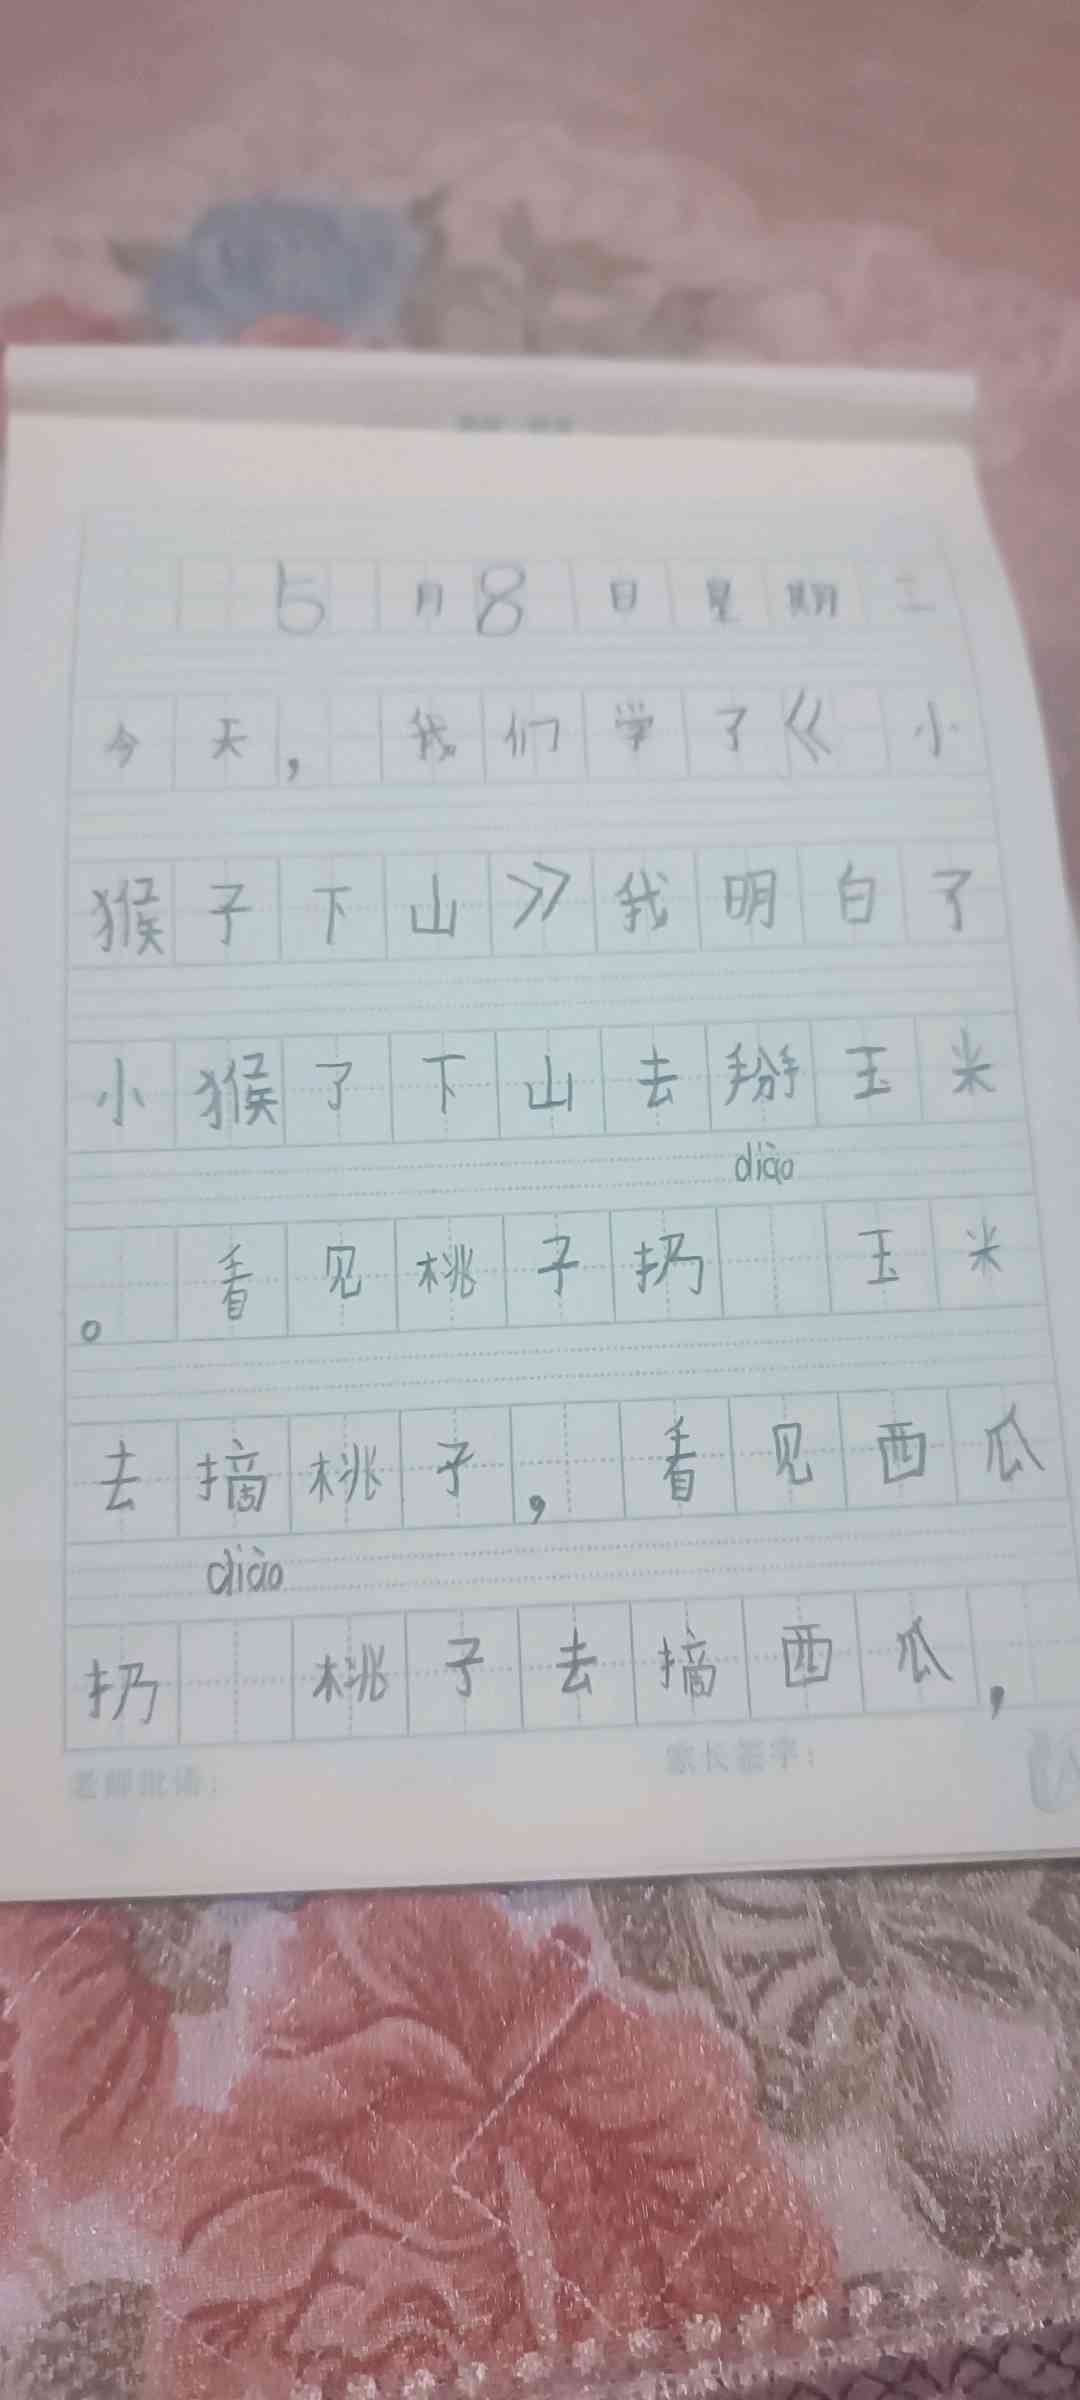 5月8日星期二
今天，我们学了《小
猴子下山》我明白了
小猴了下山去掰玉米
diào
。看见桃子扔 玉米
去摘桃子，看见西瓜
diào
扔 桃子去摘西瓜，
老师批语： 家长签字：